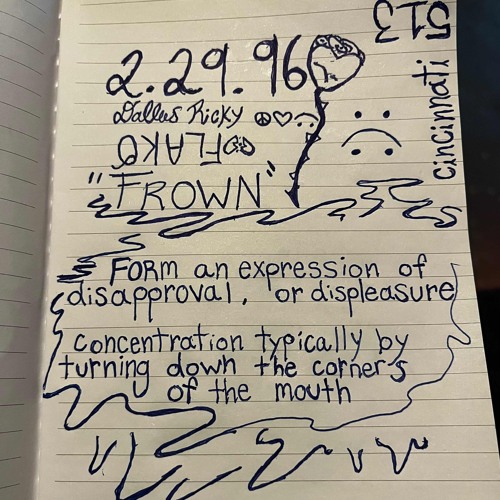 2.29.96
Dallus Ricky
FLAKO
"FROWN"
513
cincinnati
FORM an expression of
disapproval, or displeasure
concentration typically by
turning down the corners
of the mouth